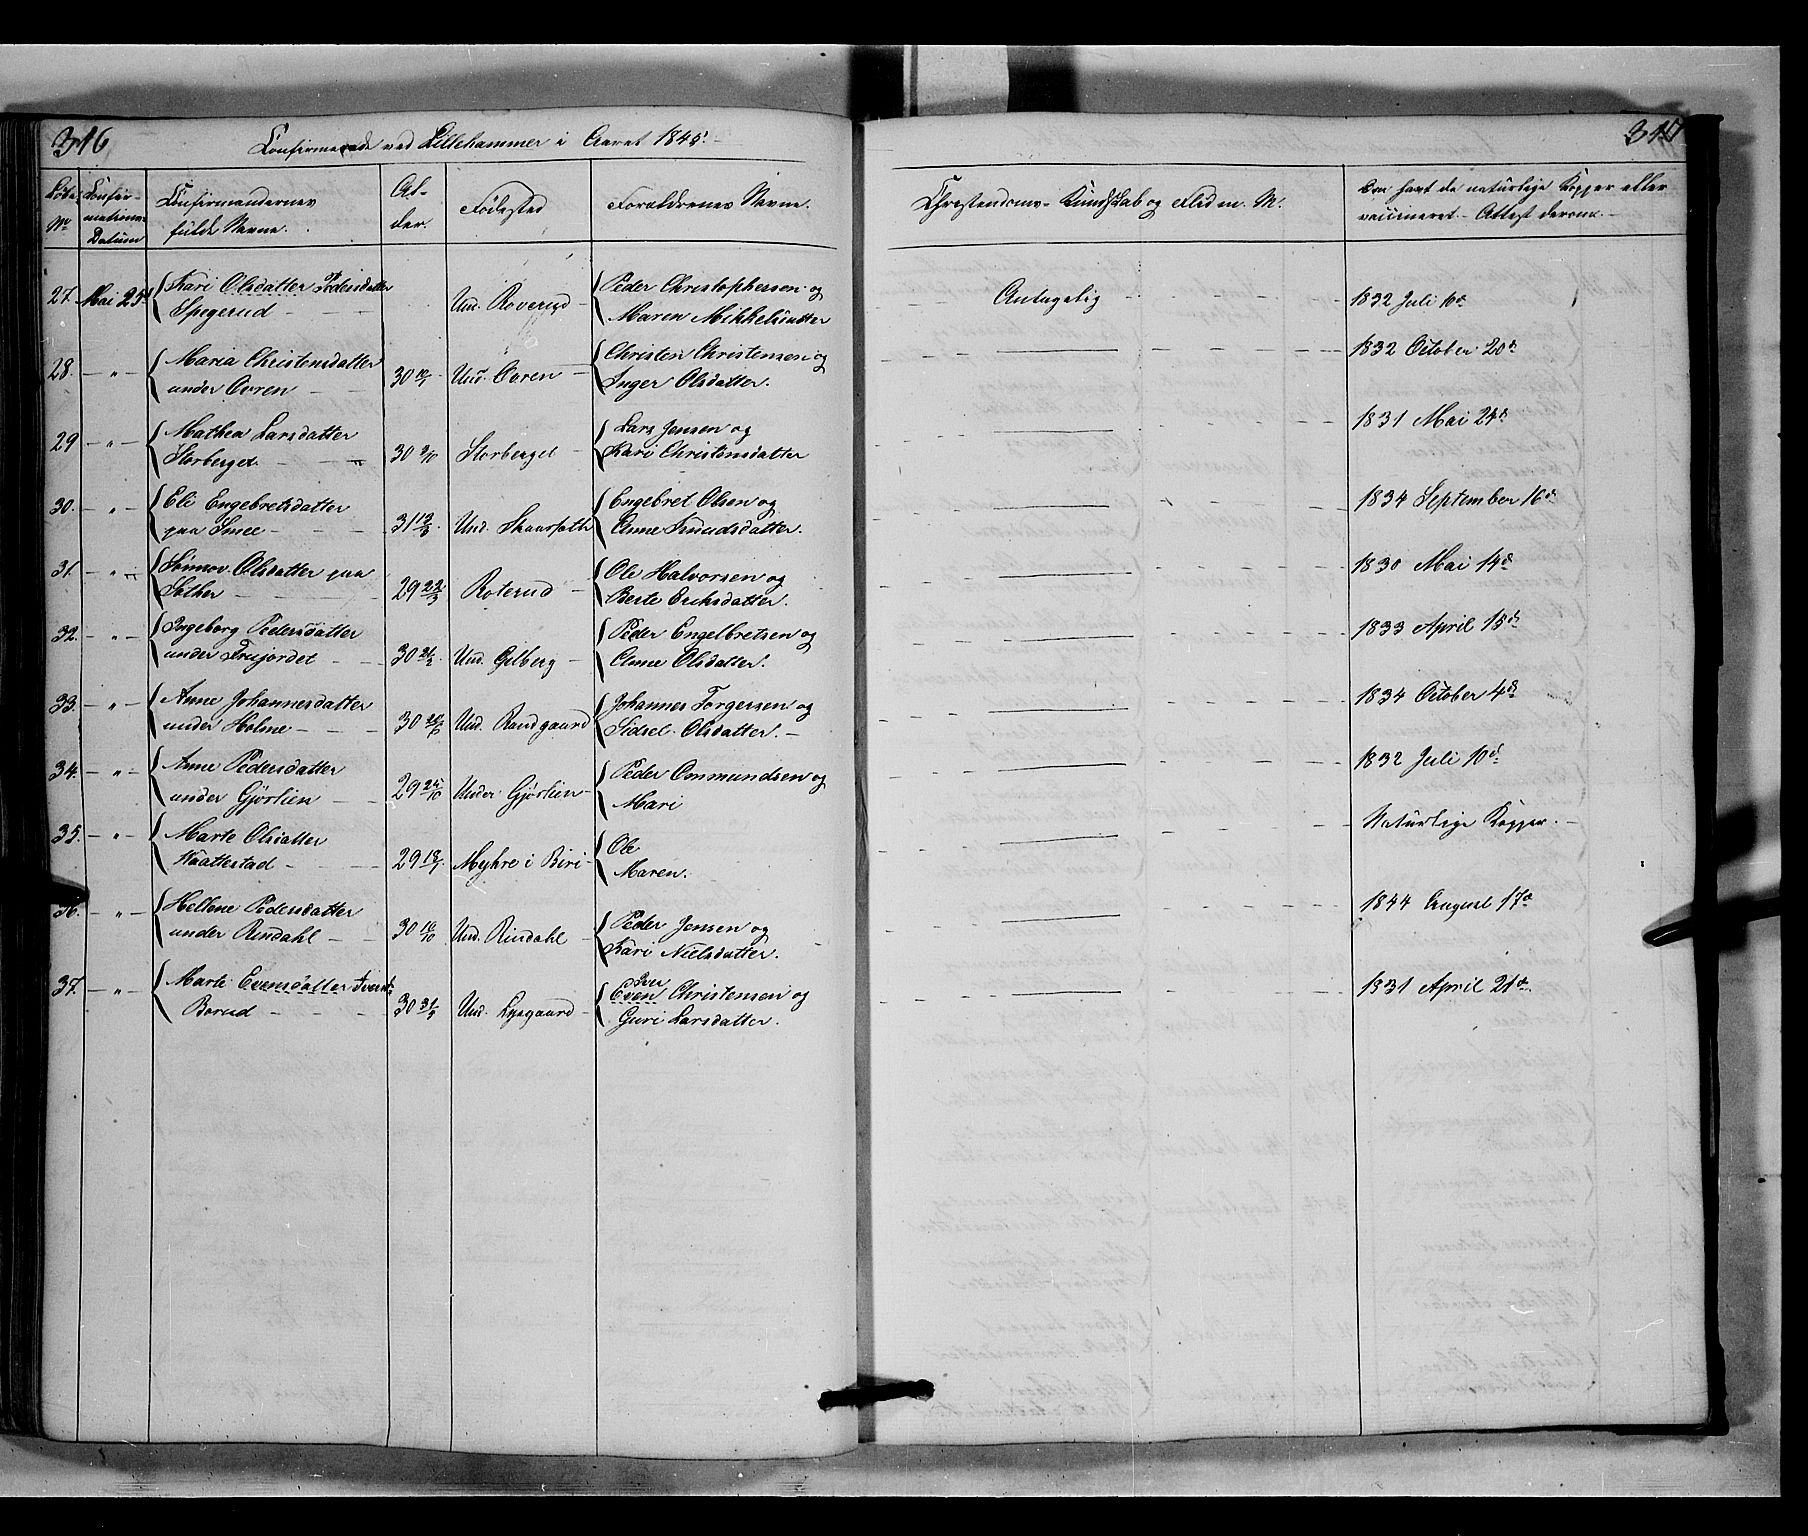 316
Confirmerede ved Lillehammer i Aaret 1845.
Löbe No
Confirmations Datum
Confirmandernes fulde Navne.
Alder.
Födested
Forældrenes Navne.
27. Mai 25d Kari Olsdatter Pedersdatter
Spegerud - - - Und. Roverud
Peder Christophersen og
Maren Mikkelsdatter
28. - " - Maria Christensdatter
under Ovren - 30 10/1 Und. Ovren -
Christen Christensen og
Inger Olsdatter.
29 - " - Mathea Larsdatter
Storberget - - 30 2/10 Storberget -
Lars Jensen og
Kari Christensdatter
30. - " - Eli Engebretsdatter
paa Smee - - 31 12/3 Und.
Engebret Olsen og
Anne Knudsdatter.
31. - " - Olsdatter paa
Sether - - 29 22/3 Roterud -
Ole Halvorsen og
Berte Eriksdatter.
32. - " - Ingeborg Pedersdatter
under - - 30 21/2 Und. Gilberg -
Peder Engelbretsen og
Anne Olsdatter.
33. - " - Anne Johannesdatter
under Holme - - 30 Und. Randgaard
Johannes Torgersen og
Sidsel Olsdatter. -
34. - " - Anne Pedersdatter
under Gjörlien - 29 25/10 Under Gjörlien -
Peder Ommundsen og
Mari
35. - " - Marte Olsdatter
Kaattestad - 29 Myhre i Biri -
Ole
Maren.
36. - " - Hellene Pedersdatter
under Rindahl - - 30 16/10 Und. Rindahl -
Peder Jensen og
Kari Nielsdatter.
37. - " - Marte Evensdatter Iversd.
Borud - - - 30 Und. Lysgaard -
Iver
Even Christensen og
Guri Larsdatter.
317
Christendoms-Kundskab og Flid m. M.
Om havt de naturlige Kopper eller
vaccineret. - Attest derom. -
Antagelig - - - 1832 Juli 10d
1832 October 20d
1831 Mai 24d
1834 September 16d
1830 Mai 14d
1833 April 15d
1834 October 4d
1832 Juli 10d
Naturlige Kopper. -
1844 August 17d
1831 April 21d